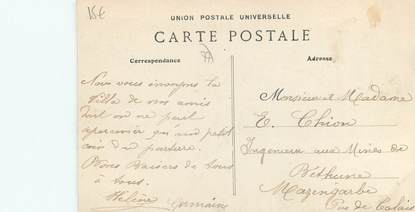 15€
UNION POSTALE UNIVERSELLE
CARTE POSTALE
Correspondance
Adresse
Nous vous envoyons la
Villa de nos amis
dont on ne peut
apercevoir qu'un petit
coin du parterre.
Bons Baisers de tous
à tous.
Hélène Germain
Monsieur et Madame
E. Chion
Ingénieur aux Mines de
Béthune
Mazingarbe
Pas de Calais